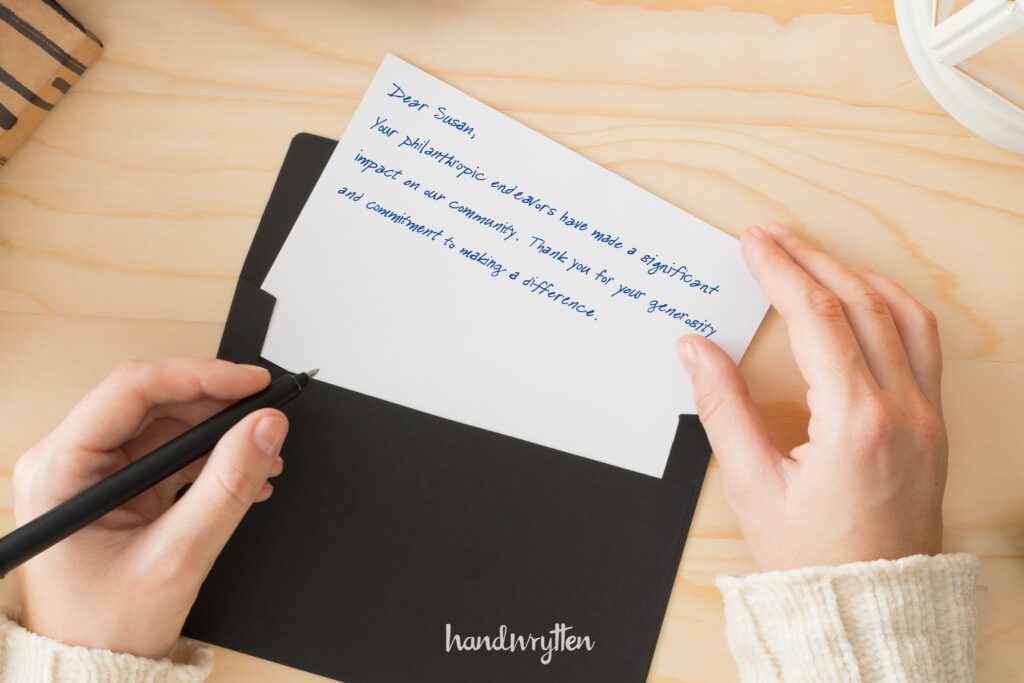 Dear Susan,
Your philanthropic endeavors have made a significant
impact on our community. Thank you for your generosity
and commitment to making a difference.
handwrytten